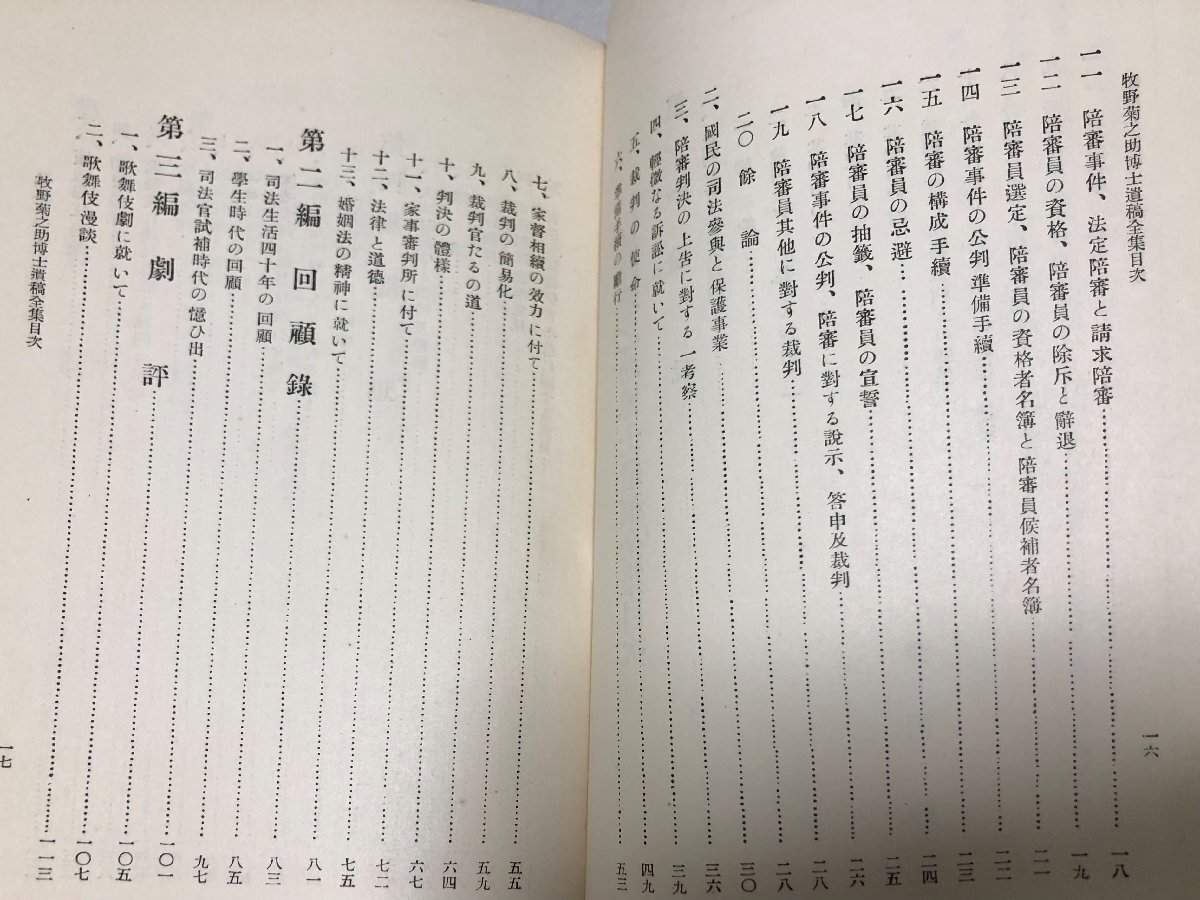 牧野菊之助博士遺稿全集目次
一六
一一 陪審事件、法定陪審と請求陪審……一八
一二 陪審員の資格、陪審員の除斥と辭退……一九
一三 陪審員選定、陪審員の資格者名簿と陪審員候補者名簿……二一
一四 陪審事件の公判準備手續……二二
一五 陪審の構成手續……二三
一六 陪審員の忌避……二四
一七 陪審員の抽籤、陪審員の宣誓……二四
一八 陪審事件の公判、陪審に對する說示、答申及裁判……二六
一九 陪審員其他に對する裁判……二八
二〇 餘論……二八
二、國民の司法參與と保護事業……三〇
三、陪審判決の上告に對する一考察……三六
四、輕微なる訴訟に就いて……三九
五、裁判の使命……四九
六、……五三
七、家督相續の效力に付て……五五
八、裁判の簡易化……五九
九、裁判官たるの道……六四
十、判決の體樣……六七
十一、家事審判所に付て……七二
十二、法律と道德……七五
十三、婚姻法の精神に就いて……八一
第二編 回顧錄……八三
一、司法生活四十年の回顧……八五
二、學生時代の回顧……九七
三、司法官試補時代の憶ひ出……一〇一
第三編 劇評……一〇五
一、歌舞伎劇に就いて……一〇七
二、歌舞伎漫談……一一三
牧野菊之助博士遺稿全集目次
一七